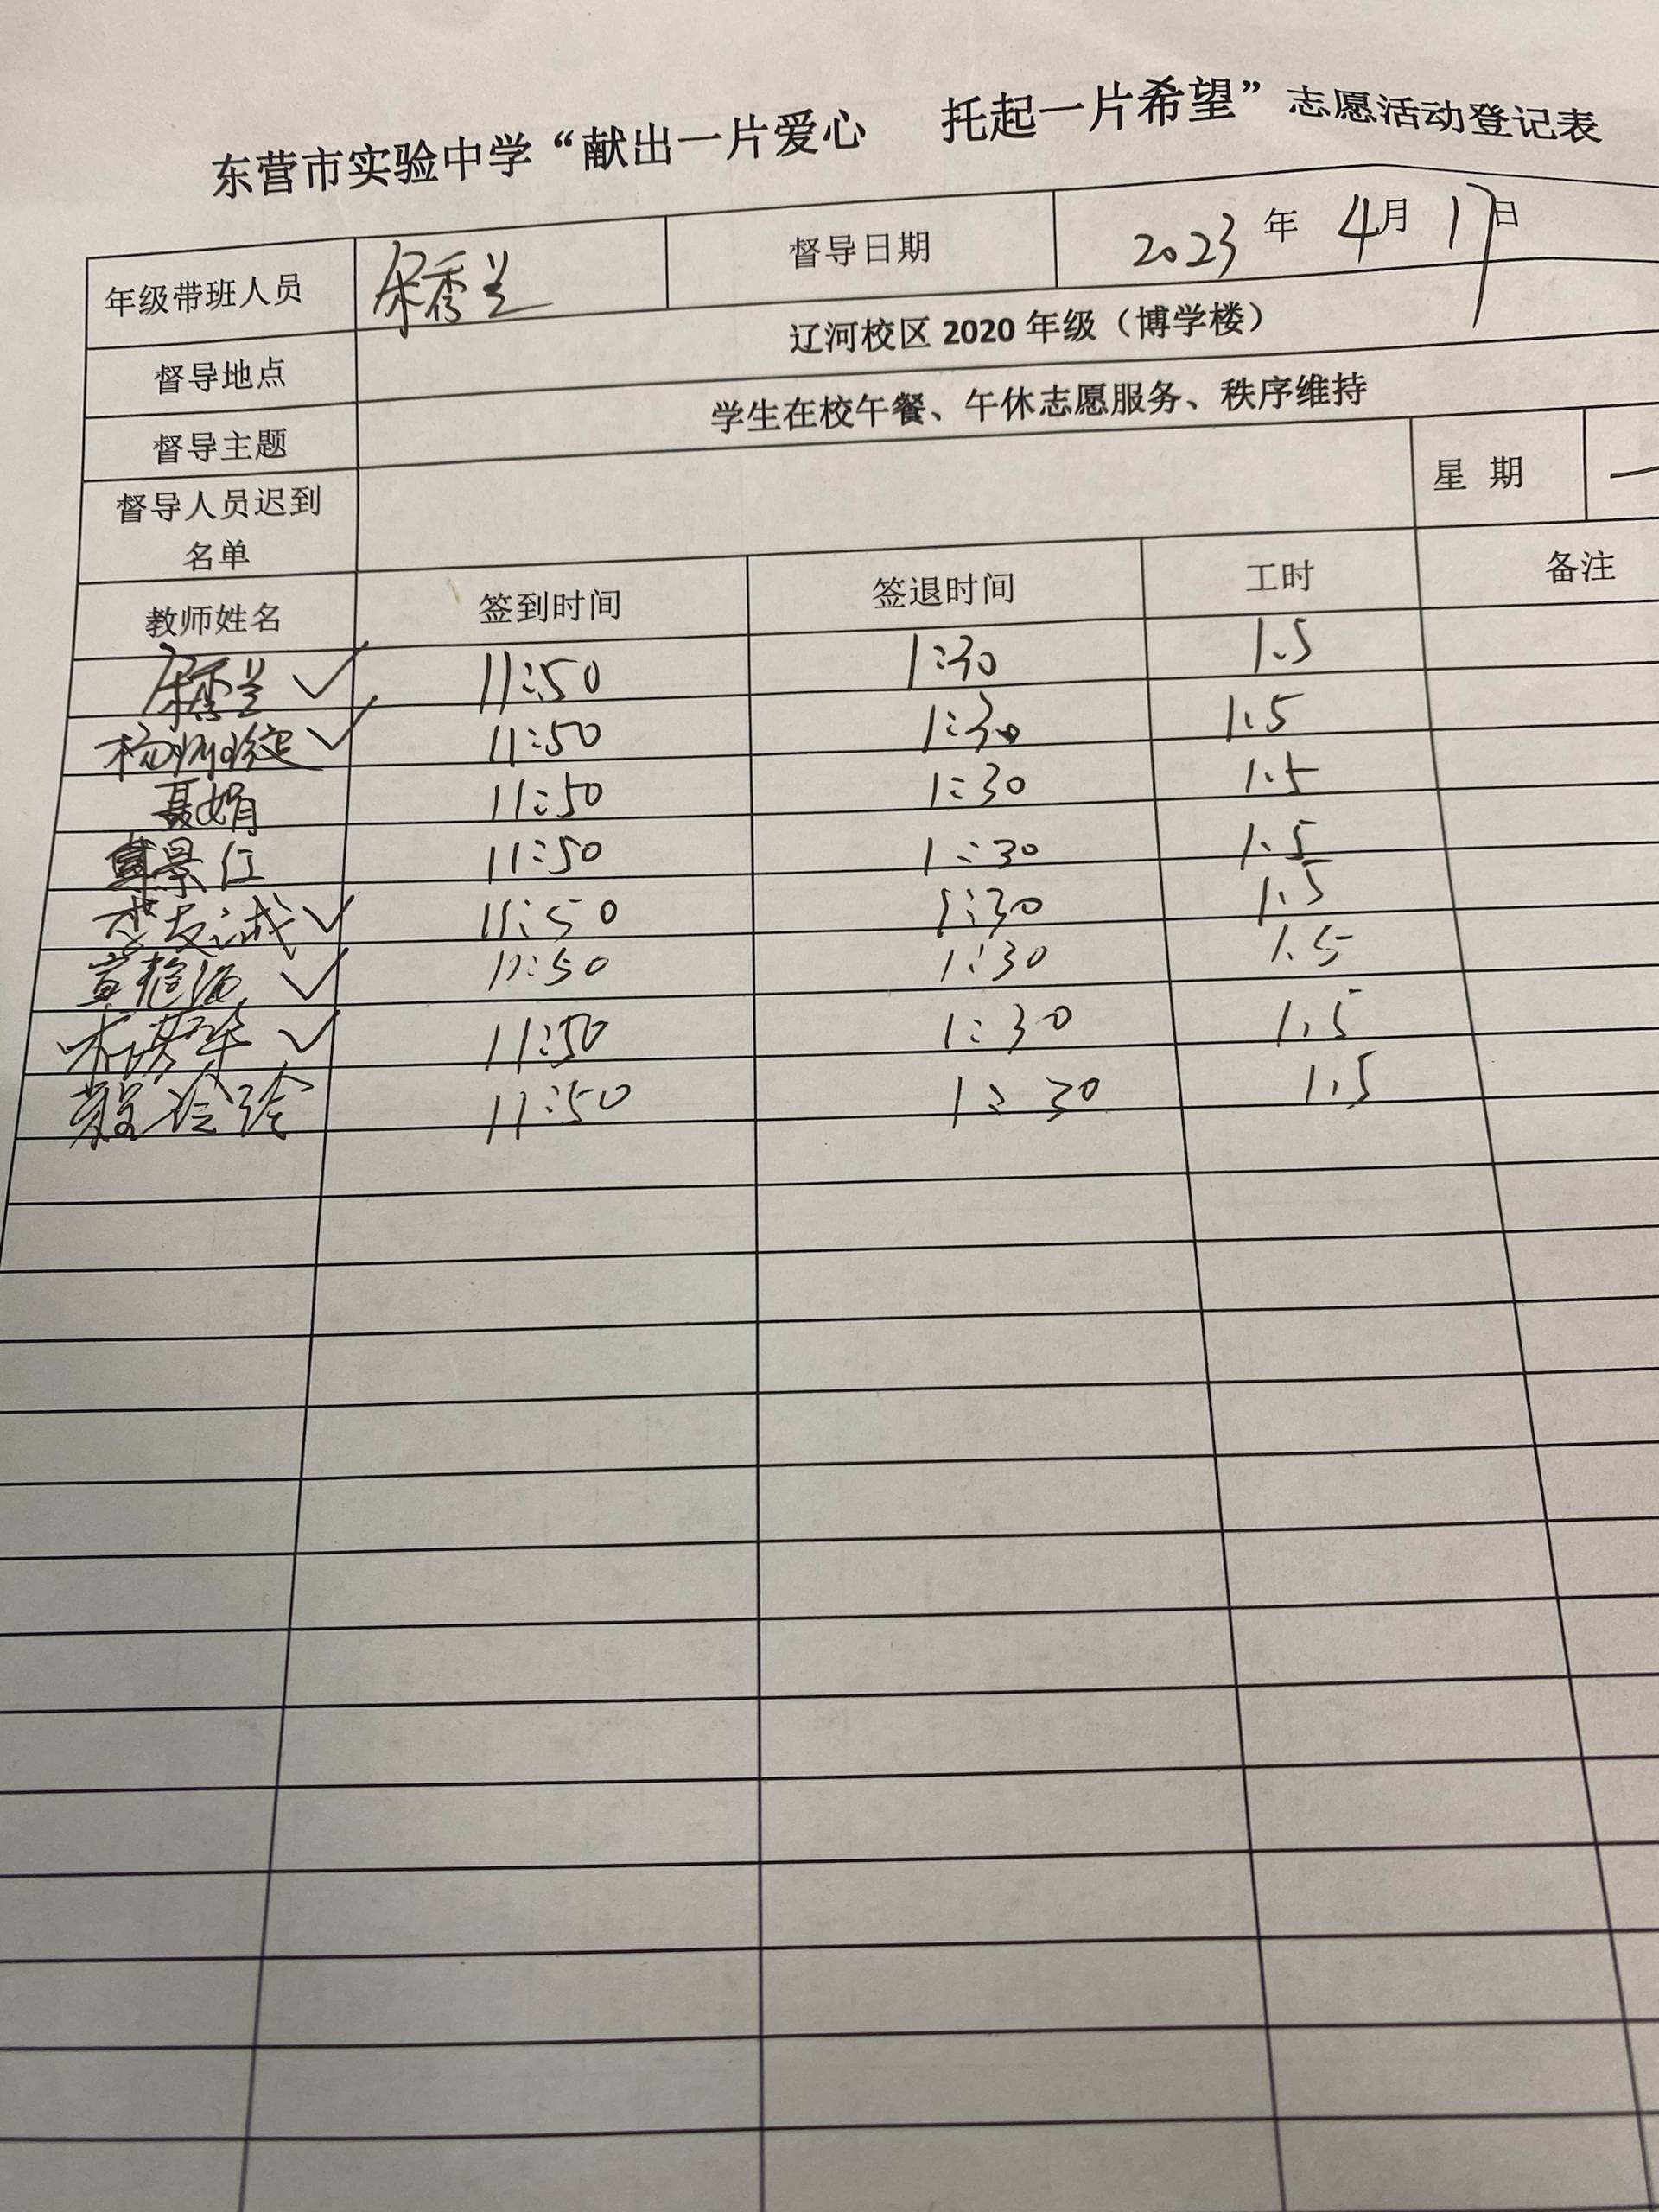 东营市实验中学“献出一片爱心 托起一片希望”志愿活动登记表
年级带班人员 宋秀兰 督导日期 2023 年 4月 17日
督导地点 辽河校区 2020 年级（博学楼）
督导主题 学生在校午餐、午休志愿服务、秩序维持
督导人员迟到名单 星 期 一
教师姓名 签到时间 签退时间 工时 备注
宋秀兰 ✓ 11:50 1:30 1.5
✓ 11:50 1:30 1.5
聂娟 11:50 1:30 1.5
景红 11:50 1:30 1.5
李友诚 ✓ 11:50 1:30 1.5
✓ 11:50 1:30 1.5
✓ 11:50 1:30 1.5
11:50 1:30 1.5